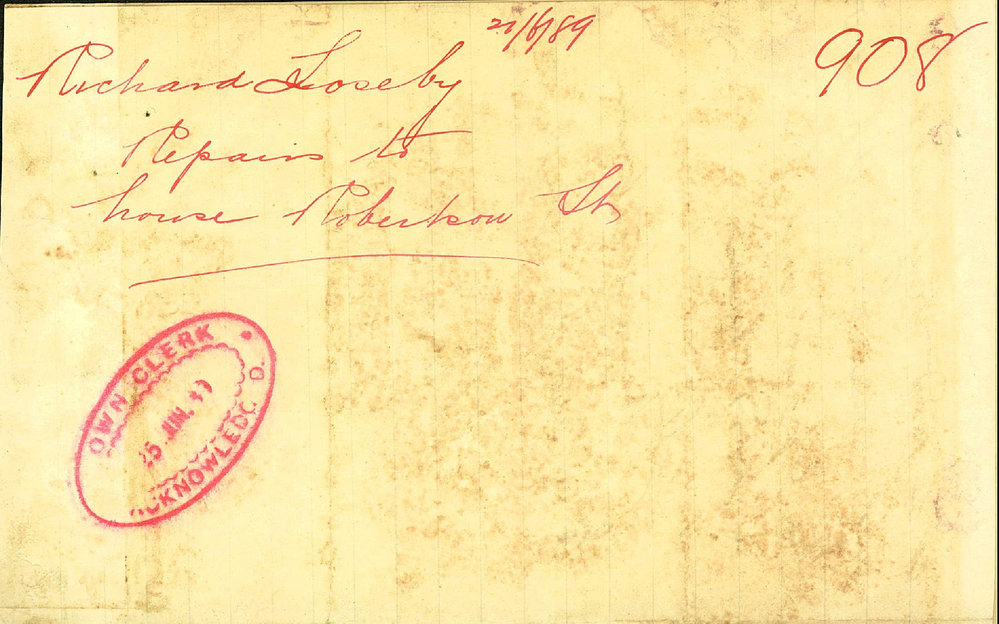 22/6/89
908
Richard Loseby
Repairs to
house Robertson St
OWN CLERK
25 JUN.
ACKNOWLEDG D.